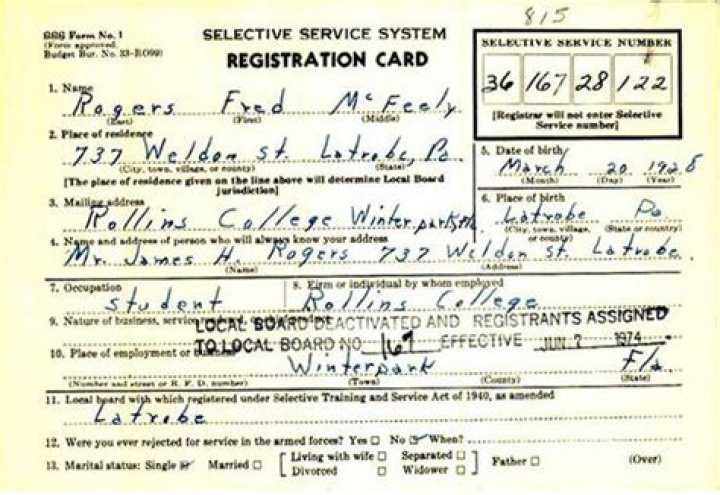 815
SSS Form No. 1
(Form approved.
Budget Bur. No. 33-R099)
SELECTIVE SERVICE SYSTEM
REGISTRATION CARD
SELECTIVE SERVICE NUMBER
36 167 28 122
[Registrar will not enter Selective
Service number]
1. Name
Rogers Fred McFeely
(Last) (First) (Middle)
2. Place of residence
737 Weldon St. Latrobe, Pa
(City, town, village, or county) (State)
[The place of residence given on the line above will determine Local Board
jurisdiction]
5. Date of birth
March 20 1928
(Month) (Day) (Year)
3. Mailing address
Rollins College Winterpark
6. Place of birth
Latrobe Pa
(City, town, village, (State or country)
or county)
4. Name and address of person who will always know your address
Mr. James H. Rogers 737 Weldon St. Latrobe
(Name) (Address)
7. Occupation
student
8. Firm or individual by whom employed
Rollins College
9. Nature of business, service
LOCAL BOARD DEACTIVATED AND REGISTRANTS ASSIGNED
TO LOCAL BOARD NO. 167 EFFECTIVE JUN 7 1974
10. Place of employment or business
Winterpark Fla
(Number and street or R. F. D. number) (Town) (County) (State)
11. Local board with which registered under Selective Training and Service Act of 1940, as amended
Latrobe
12. Were you ever rejected for service in the armed forces? Yes ☐ No ☑ When?
13. Marital status: Single ☑ Married ☐ [Living with wife ☐ Separated ☐] Father ☐ (Over)
Divorced ☐ Widower ☐